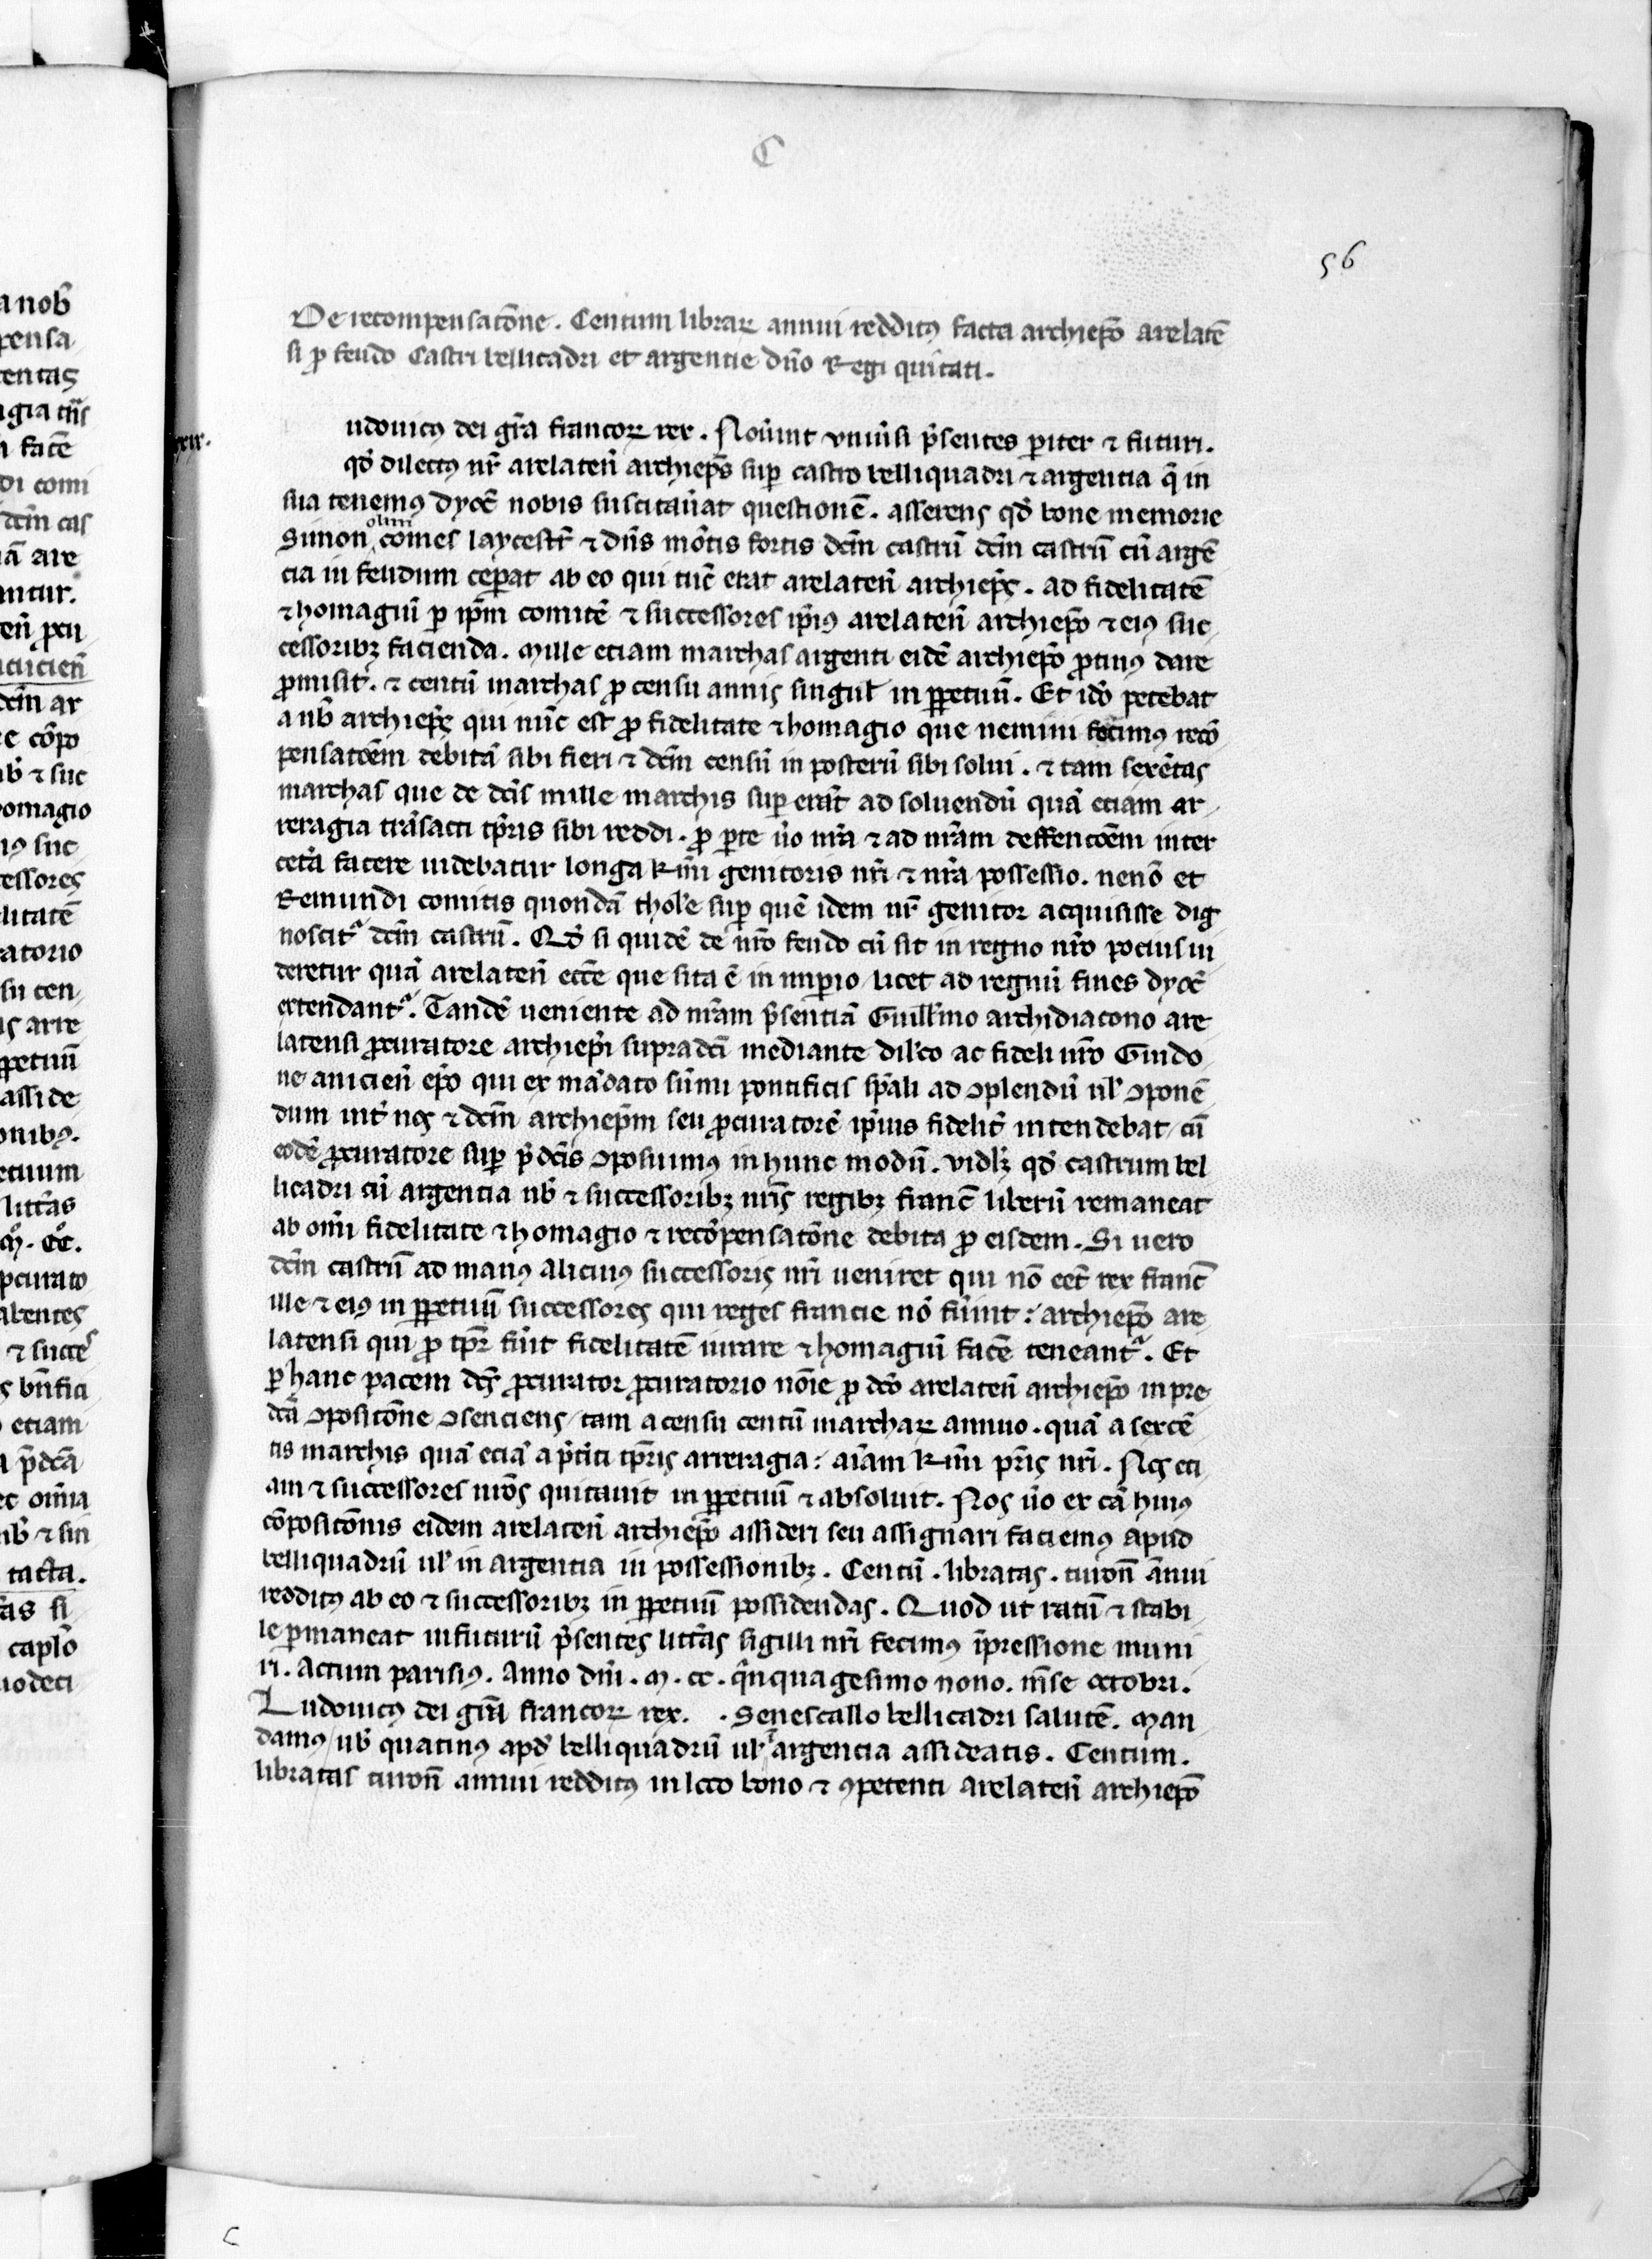 C
56
De recompensatõne. Centum libraꝝ annui redditꝰ facta archiepõ arelatẽ
si ꝓ feudo Castri bellicadri et argentie dño Regi quitati.
udouicꝰ dei gr̃a francoꝝ rex. Nou̾int vniu̾si p̃sentes pariter ⁊ futuri.
qđ dilectꝰ nr̃ arelateñ archiep̃s sup̱ castro belliquadri ⁊ argentia q̃ in
sua tenemꝰ dyoc̃ nobis suscitau̾at questionẽ. asserens qđ bone memorie
Simon olim comes laycestr̃ ⁊ dñs mõtis fortis dcm̃ castrũ dcm̃ castrũ cũ argẽ
cia in feudum cep̱at ab eo qui tũc erat arelateñ archiep̃s. ad fidelitatẽ
⁊ homagiũ p̱ ip̃m comitẽ ⁊ successores ip̃ius arelateñ archiepõ ⁊ eiꝰ suc
cessoribꝫ facienda. Mille etiam marchas argenti eidẽ archiepõ ꝓtinꝰ dare
ꝓmisit. ⁊ centũ marchas ꝓ censu annis singul̾ in p̱petuũ. Et iđo petebat
a nob̾ archiep̃s qui nũc est ꝓ fidelitate ⁊ homagio que nemini fecimus recõ
pensatõem debitã sibi fieri ⁊ dcm̃ censũ in posterũ sibi solui. ⁊ tam sexcẽtas
marchas que de dcĩs mille marchis sup̱erãt ad soluendũ quã etiam ar
reragia trãsacti tp̃ris sibi reddi. ꝓ p̱te ũo nr̃a ⁊ ad nr̃am deffentõem inter
cetã facere uidebatur longa k̃mi genitoris nr̃i ⁊ nr̃a possessio. necnõ et
Remundi comitis quondã thol̾e sup̱ quẽ idem nr̃ genitor acquisisse dig
noscitᷣ dcm̃ castrũ. Qđ si quidẽ de nr̃o feudo cũ sit in regno nr̃o pocius ui
deretur quã arelateñ ecc̃e que sita ẽ in imp̱io licet ad regnũ fines dyoc̃
extendantᷣ. Tandẽ ueniente ad nr̃am p̃sentiã Guill̾mo archidiacono are
latensi ꝓcuratore archiep̃i supradc̃i mediante dil̾co ac fideli nr̃o Guido
ne anicieñ epõ qui ex mãdato sũmi pontificis sp̃ali ad ꝯplendũ ul̾ ꝯponẽ
dum int̾ nos ⁊ dcm̃ archiep̃m seu ꝓcuratorẽ ip̃ius fidelit̾ intendebat cũ
eodẽ ꝓcuratore sup̱ p̃dc̃is ꝯposuimꝰ in hunc modũ. vidlꝫ qđ castrum bel
licadri cũ argentia nob̾ ⁊ successoribꝫ nr̃is regibꝫ franc̃ liberũ remaneat
ab omĩ fidelitate ⁊ homagio ⁊ recõpensatõne debita ꝓ eisdem. Si uero
dcm̃ castrũ ad manꝰ alicuiꝰ successoris nr̃i ueniret qui nõ eẽt rex franc̃
ille ⁊ eiꝰ in p̱petuũ successores qui reges francie nõ fu̾int: archiepõ are
latensi qui ꝓ tp̃r fu̾it fidelitatẽ iurare ⁊ homagiũ facẽ teneantᷣ. Et
p̱ hanc pacem dc̃s ꝓcurator ꝓcuratorio noĩe ꝓ dc̃o arelateñ archiepõ in pre
dc̃a ꝯpositõne ꝯsenciens tam a censu centũ marchaꝝ annuo. quã a sexcẽ
tis marchis quã eciã a p̃t̾iti tp̃ris arreragia: aĩam k̃mi pr̃is nr̃i. Nos eci
am ⁊ successores nr̃os quitauit in p̱petuũ ⁊ absoluit. Nos ũo ex cã huiꝰ
cõpositõnis eidem arelateñ archiepõ assideri seu assignari faciemꝰ apud
belliquadrũ ul̾ in argentia in possessionibꝫ. Centũ. libratas. turoñ ãnui
redditꝰ ab eo ⁊ successoribꝫ in p̱petuũ possidendas. Quod ut ratũ ⁊ stabi
le p̱maneat in futurũ p̃sentes litt̾as sigilli nr̃i fecimꝰ ĩpressione muni
ri. Actum parisiꝰ. Anno dñi. M. CC. q̃nquagesimo nono. m̃se octobri.
Ludouicꝰ dei gr̃a francoꝝ rex. . Senescallo bellicadri salutẽ. Man
damꝰ uob̾ quatinꝰ apđ belliquadrũ ul̾ ĩ argencia assideatis. Centum.
libratas turoñ annui redditꝰ in loco bono ⁊ ꝯpetenti arelateñ archiepõ